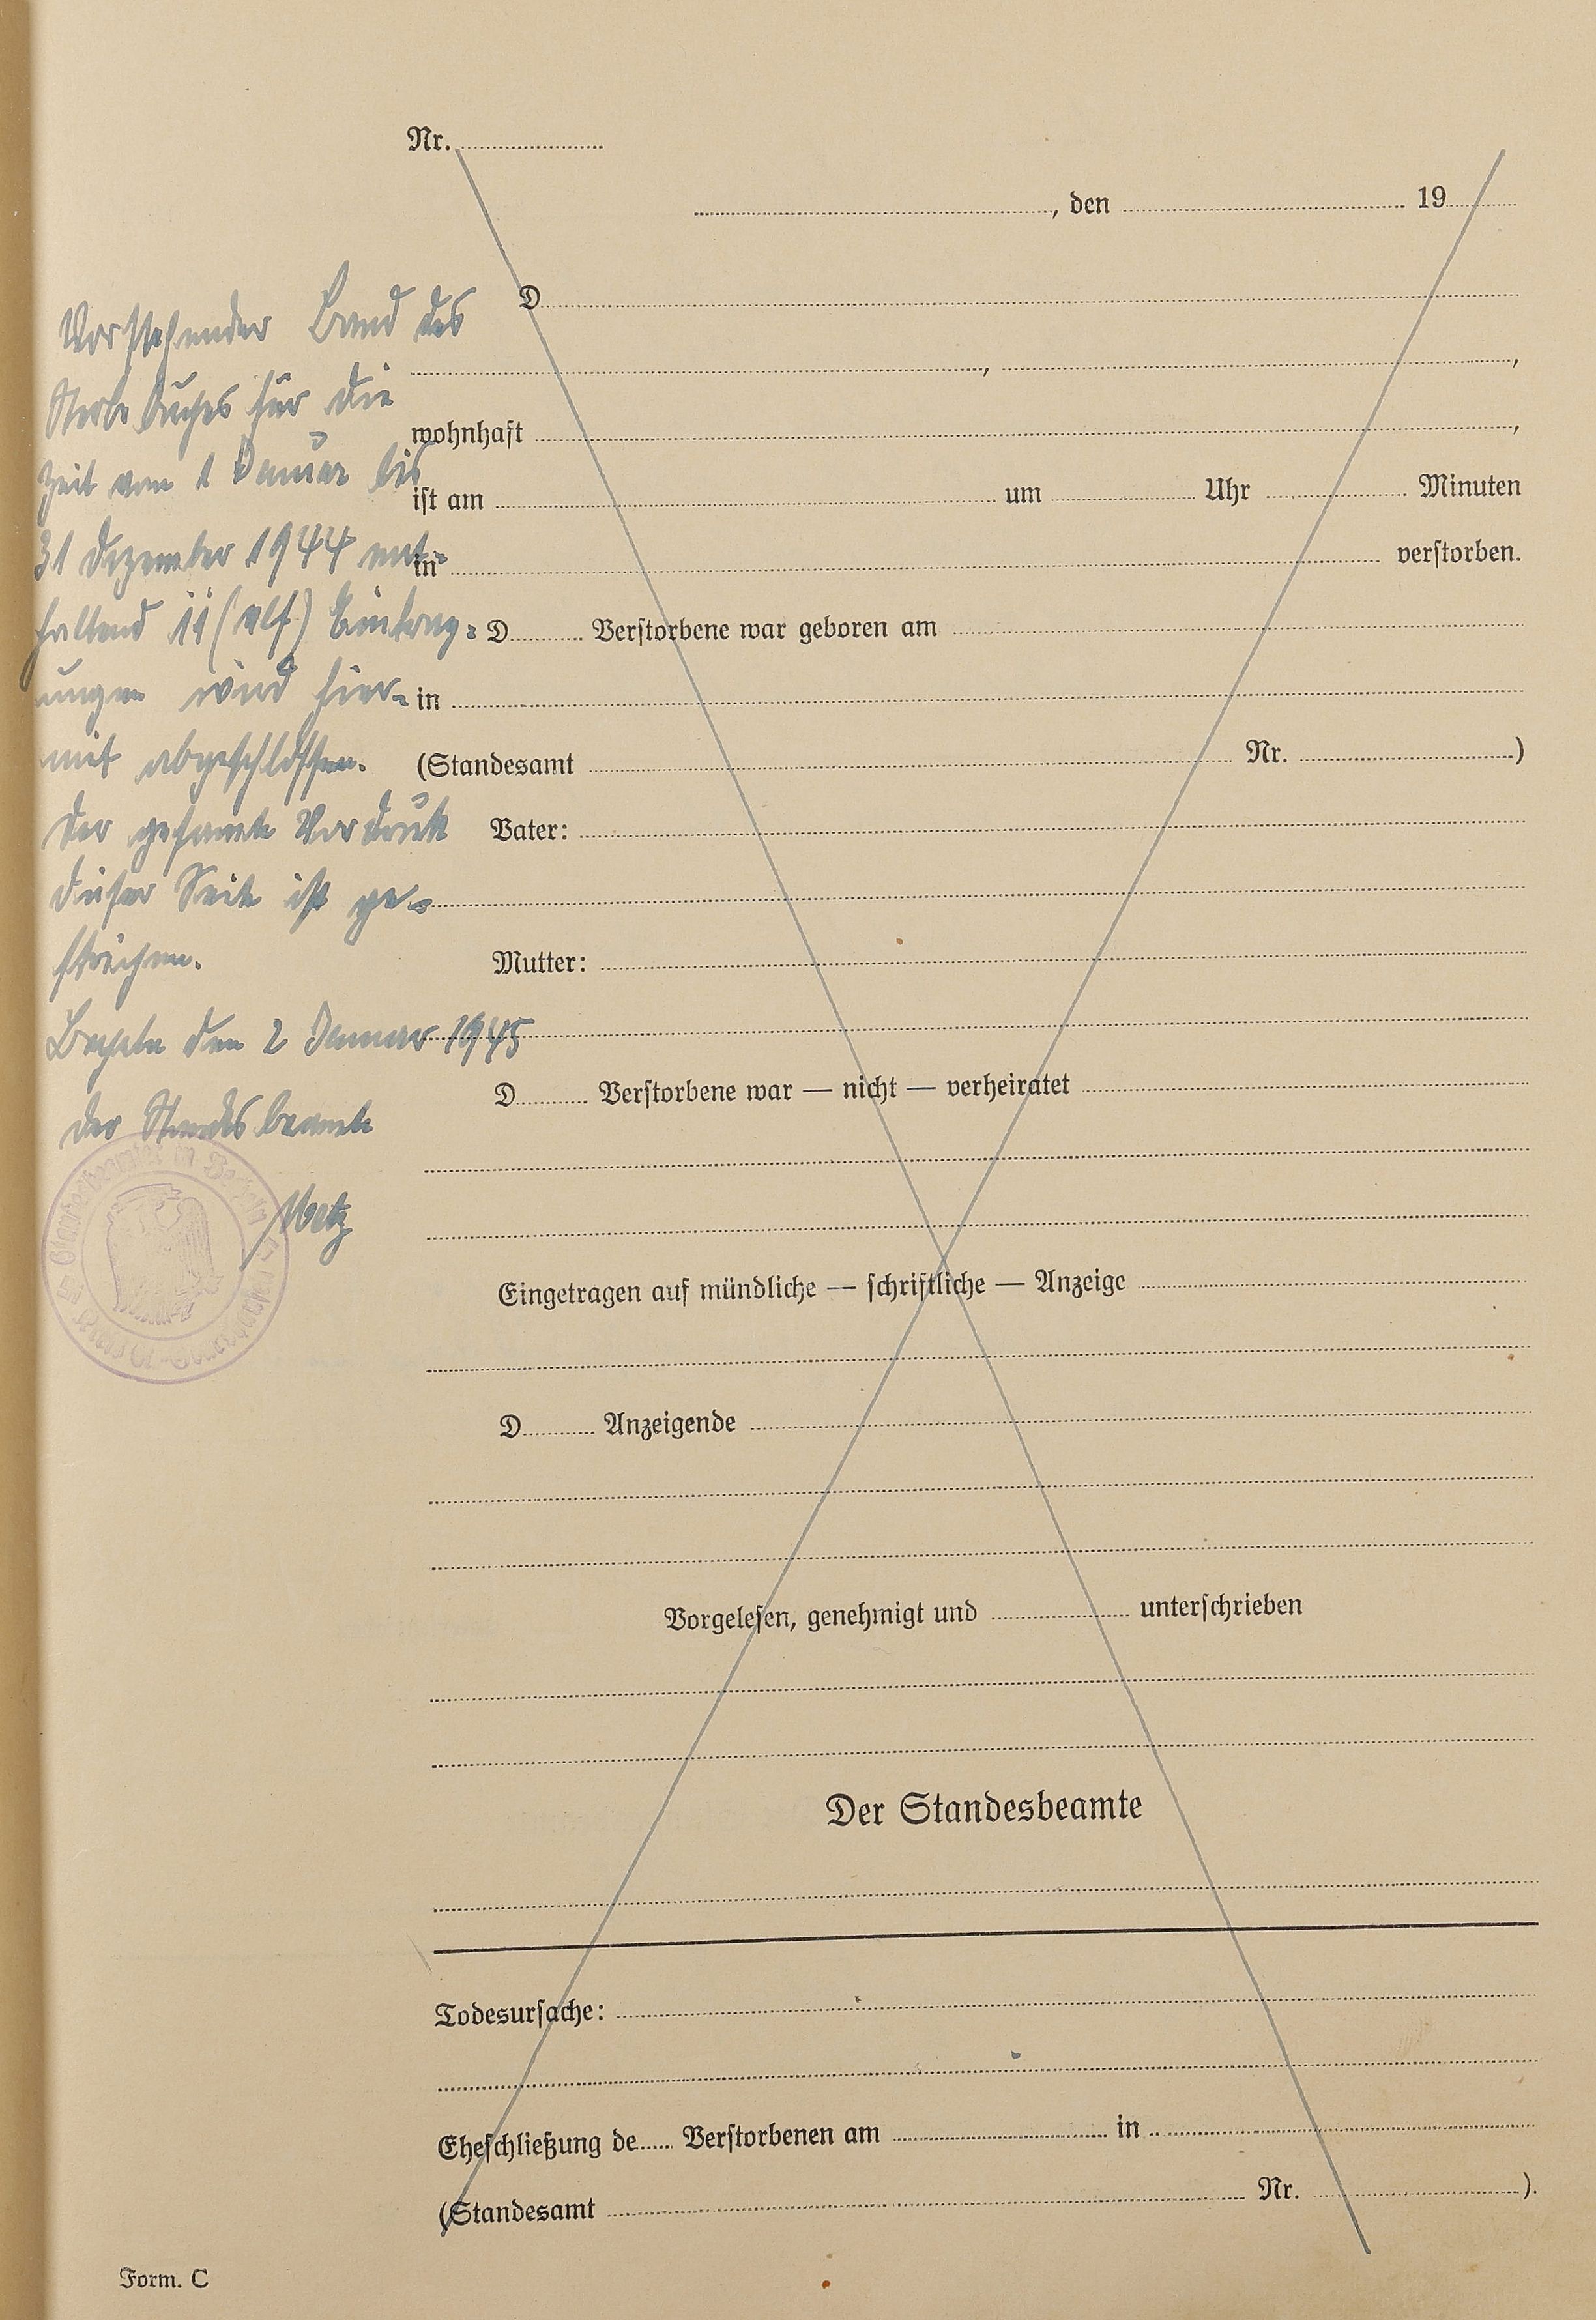 Nr.
, den 19
D
, ,
wohnhaft ,
ist am um Uhr Minuten
in verstorben.
D Verstorbene war geboren am
in
(Standesamt Nr. )
Vater:
Mutter:
D Verstorbene war — nicht — verheiratet
Eingetragen auf mündliche — schriftliche — Anzeige
D Anzeigende
Vorgelesen, genehmigt und unterschrieben
Der Standesbeamte
Todesursache:
Eheschließung de Verstorbenen am in
(Standesamt Nr. ).
Form. C
Vorstehender Band des
Sterbebuches für die
Zeit vom 1 Januar bis
31 Dezember 1944 ent-
haltend 11 (elf) Eintrag-
ungen wird hier-
mit abgeschlossen.
Der gesamte Vordruck
dieser Seite ist ge-
strichen.
Becheln den 2 Januar 1945
Der Standesbeamte
Metz
Standesbeamter in Becheln